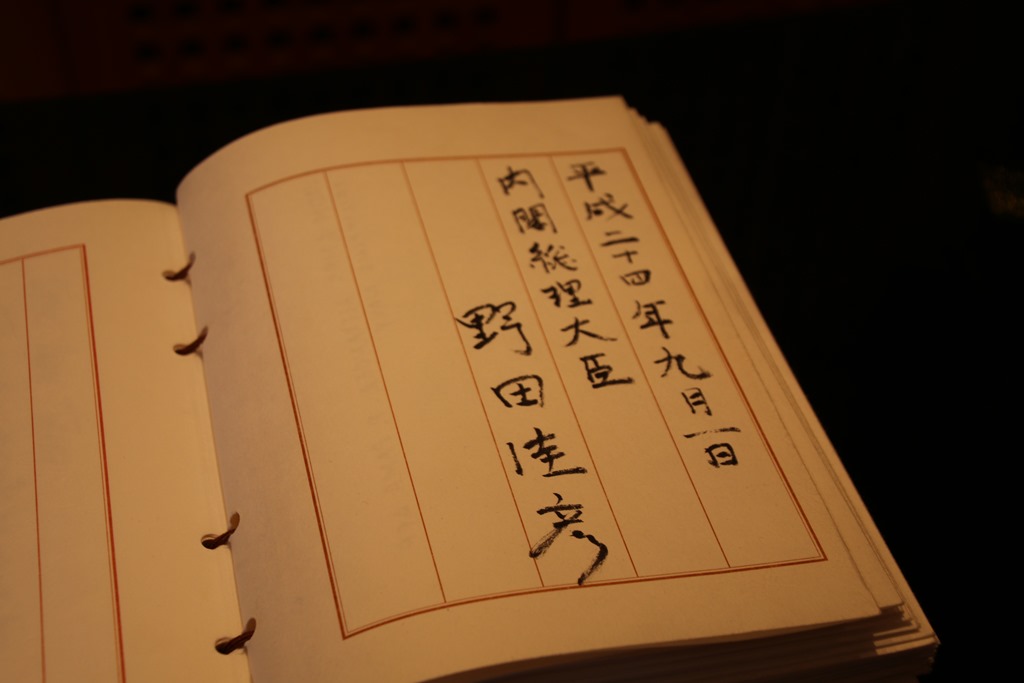 平成二十四年九月一日
内閣総理大臣
野田佳彦